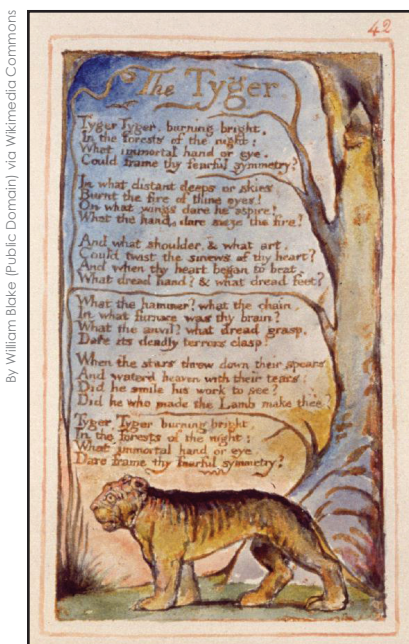 By William Blake (Public Domain) via Wikimedia Commons
42
The Tyger
Tyger Tyger. burning bright,
In the forests of the night:
What immortal hand or eye.
Could frame thy fearful symmetry?
In what distant deeps or skies.
Burnt the fire of thine eyes!
On what wings dare he aspire!
What the hand, dare sieze the fire?
And what shoulder, & what art,
Could twist the sinews of thy heart?
And when thy heart began to beat,
What dread hand? & what dread feet?
What the hammer? what the chain,
In what furnace was thy brain?
What the anvil? what dread grasp,
Dare its deadly terrors clasp!
When the stars threw down their spears
And water'd heaven with their tears:
Did he smile his work to see?
Did he who made the Lamb make thee?
Tyger Tyger burning bright,
In the forests of the night:
What immortal hand or eye,
Dare frame thy fearful symmetry?